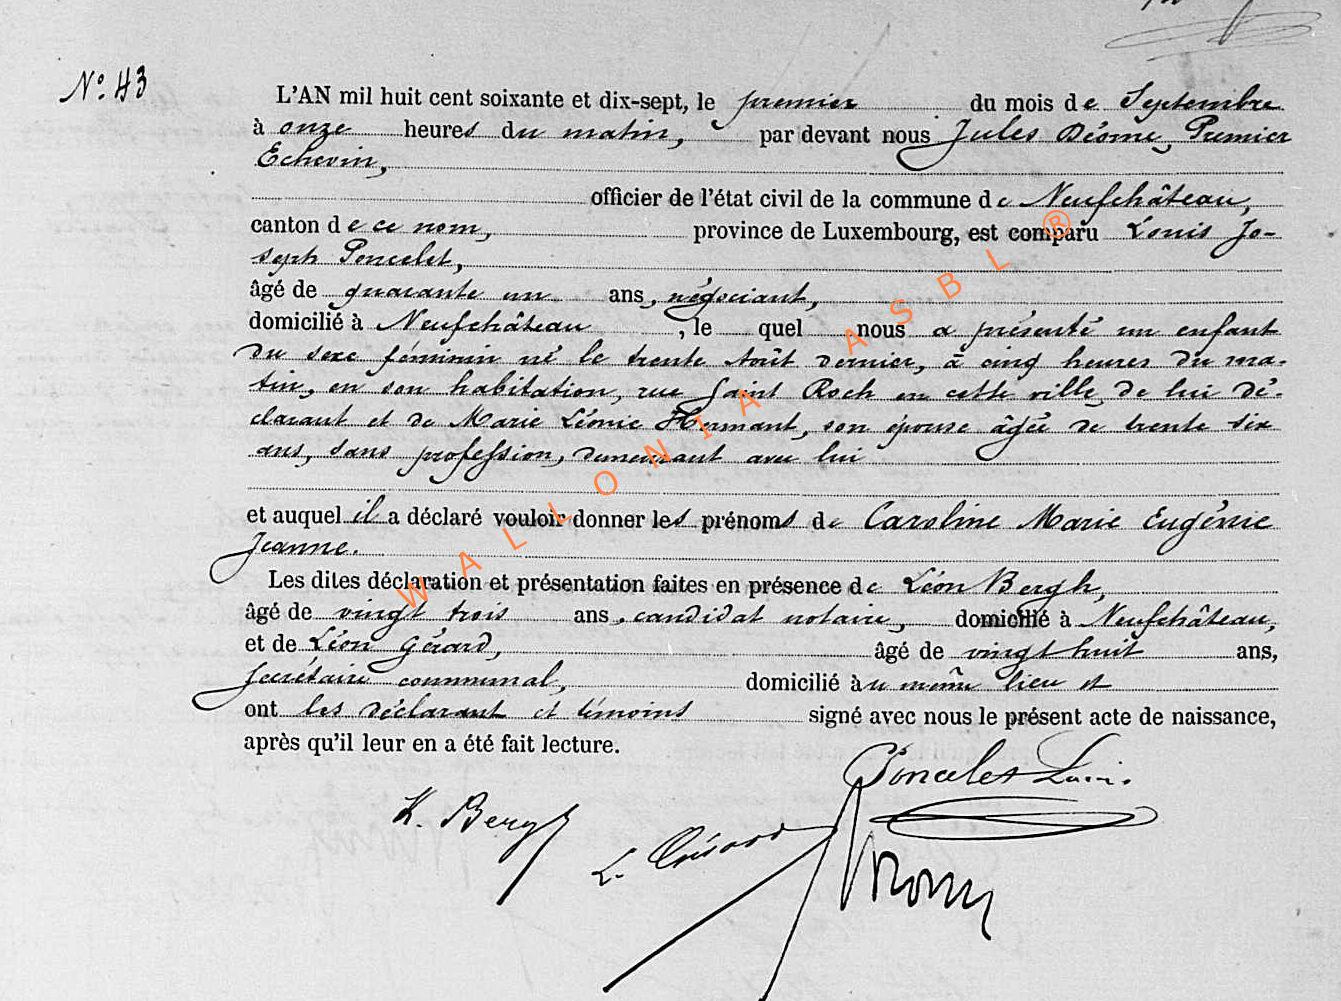 N° 43
L'AN mil huit cent soixante et dix-sept, le premier du mois de Septembre
à onze heures du matin, par devant nous Jules Déome, Premier
Echevin,
officier de l'état civil de la commune de Neufchâteau,
canton de ce nom, province de Luxembourg, est comparu Louis Jo-
seph Poncelet,
âgé de quarante un ans, négociant,
domicilié à Neufchâteau, lequel nous a présenté un enfant
du sexe féminin né le trente Août dernier, à cinq heures du ma-
tin, en son habitation, rue Saint Roch en cette ville, de lui dé-
clarant et de Marie Léonie Hermant, son épouse âgée de trente six
ans, sans profession, demeurant avec lui
et auquel il a déclaré vouloir donner les prénoms de Caroline Marie Eugénie
Jeanne.
Les dites déclaration et présentation faites en présence de Léon Bergh,
âgé de vingt trois ans, candidat notaire, domicilié à Neufchâteau,
et de Léon Gérard, âgé de vingt huit ans,
Secrétaire communal, domicilié au même lieu et
ont les déclarant et témoins signé avec nous le présent acte de naissance,
après qu'il leur en a été fait lecture.
Poncelet Louis.
K. Bergh
L. Gérard
WALLONIA ASBL ®